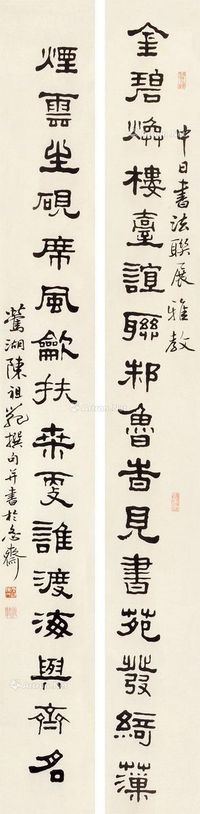 中日書法聯展雅教
金碧煥樓臺誼聯邾魯昔見書苑發綺
煙雲坐硯席風歙扶桑更誰渡海與齊名
鴛湖陳祖範撰句并書於念齋